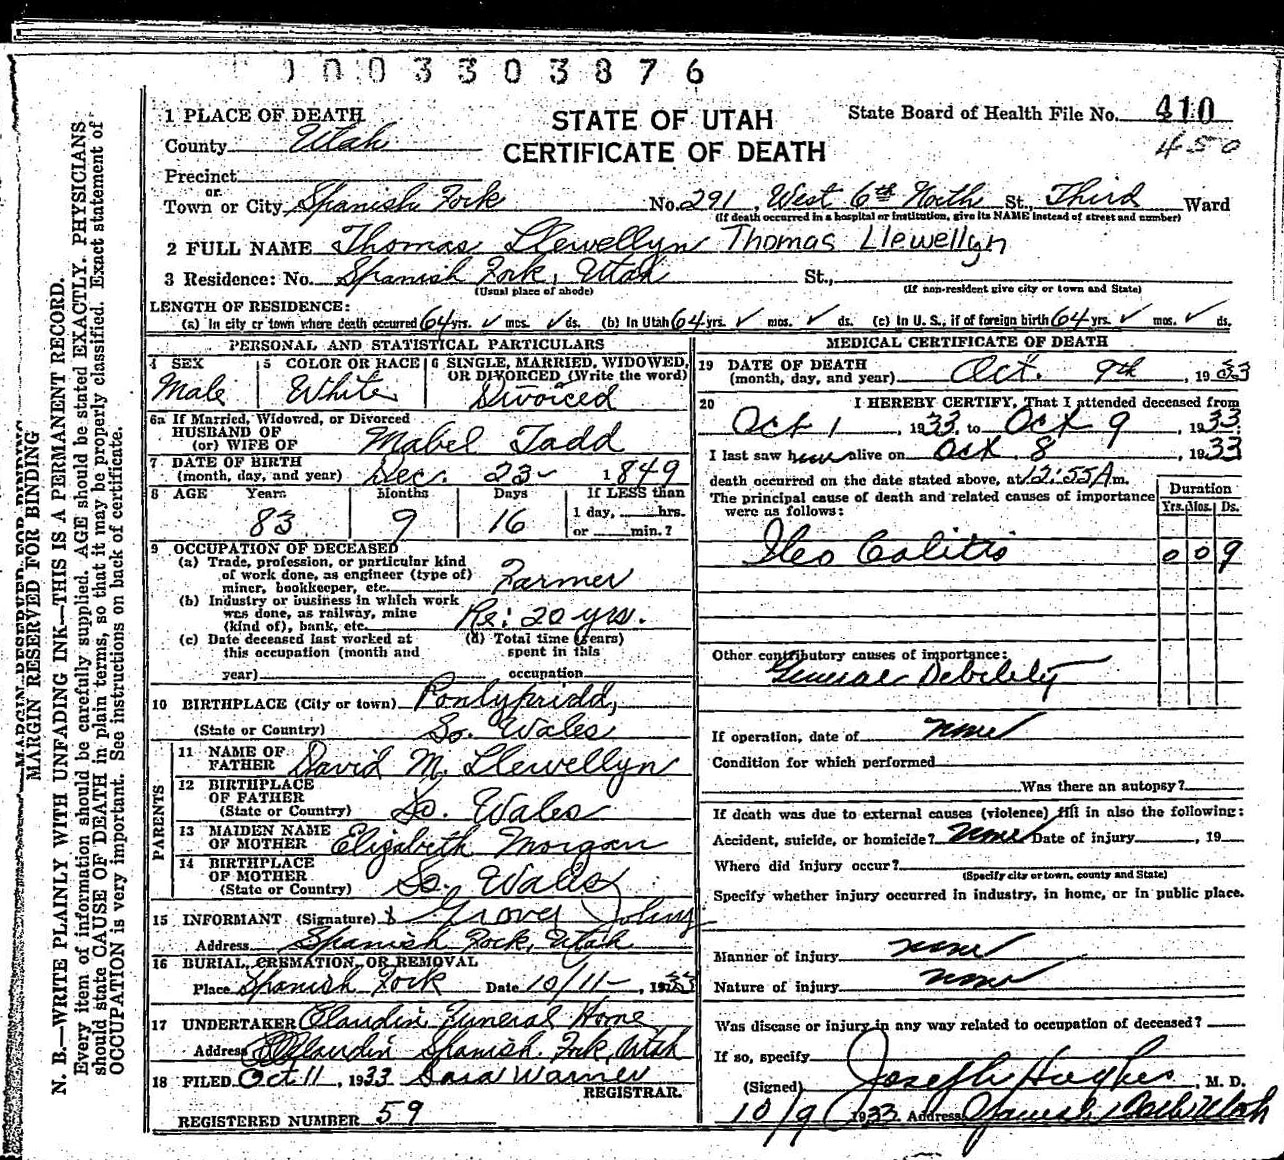 0003303876
1 PLACE OF DEATH
STATE OF UTAH
CERTIFICATE OF DEATH
State Board of Health File No. 410
450
County Utah
Precinct
or
Town or City Spanish Fork No. 291, West 6th North St., Third Ward
(If death occurred in a hospital or institution, give its NAME instead of street and number)
2 FULL NAME Thomas Llewellyn Thomas Llewellyn
3 Residence: No. Spanish Fork, Utah St.,
(Usual place of abode) (If non-resident give city or town and State)
LENGTH OF RESIDENCE:
(a) In city or town where death occurred 64 yrs. ✓ mos. ✓ ds. (b) In Utah 64 yrs. ✓ mos. ✓ ds. (c) In U. S., if of foreign birth 64 yrs. ✓ mos. ✓ ds.
PERSONAL AND STATISTICAL PARTICULARS
4 SEX 5 COLOR OR RACE 6 SINGLE, MARRIED, WIDOWED, OR DIVORCED (Write the word)
Male White Divorced
6a If Married, Widowed, or Divorced
HUSBAND OF
(or) WIFE OF Mabel Tadd
7 DATE OF BIRTH
(month, day, and year) Dec. 23- 1849
8 AGE Years Months Days If LESS than
1 day, hrs.
83 9 16 or min.?
9 OCCUPATION OF DECEASED
(a) Trade, profession, or particular kind
of work done, as engineer (type of)
miner, bookkeeper, etc. Farmer
(b) Industry or business in which work
was done, as railway, mine
(kind of), bank, etc. Re: 20 yrs.
(c) Date deceased last worked at (d) Total time (years)
this occupation (month and spent in this
year) occupation
10 BIRTHPLACE (City or town) Pontypridd,
(State or Country) So. Wales
PARENTS
11 NAME OF
FATHER David M. Llewellyn
12 BIRTHPLACE
OF FATHER
(State or Country) So. Wales
13 MAIDEN NAME
OF MOTHER Elizabeth Morgan
14 BIRTHPLACE
OF MOTHER
(State or Country) So. Wales
15 INFORMANT (Signature) x Grover
Address Spanish Fork, Utah
16 BURIAL, CREMATION, OR REMOVAL
Place Spanish Fork Date 10/11-, 1933
17 UNDERTAKER Claudin Funeral Home
Address Claudin Spanish Fork, Utah
18 FILED Oct 11, 1933 Sara Warner
REGISTRAR.
REGISTERED NUMBER 59
MEDICAL CERTIFICATE OF DEATH
19 DATE OF DEATH
(month, day, and year) Oct. 9th, 1933
20 I HEREBY CERTIFY, That I attended deceased from
Oct 1 1933, to Oct 9, 1933
I last saw him alive on Oct 8, 1933
death occurred on the date stated above, at 12:55 A m.
The principal cause of death and related causes of importance
were as follows:
Duration
Yrs. Mos. Ds.
Ileo Colitis 0 0 9
Other contributory causes of importance:
General Debility
If operation, date of none
Condition for which performed
Was there an autopsy?
If death was due to external causes (violence) fill in also the following:
Accident, suicide, or homicide? none Date of injury , 19
Where did injury occur?
(Specify city or town, county and State)
Specify whether injury occurred in industry, in home, or in public place.
Manner of injury none
Nature of injury none
Was disease or injury in any way related to occupation of deceased?
If so, specify
(Signed) Joseph Hughes, M. D.
10/9 1933 Address Spanish Fork Utah
MARGIN RESERVED FOR BINDING
MARGIN RESERVED FOR BINDING
N. B.—WRITE PLAINLY WITH UNFADING INK—THIS IS A PERMANENT RECORD.
Every item of information should be carefully supplied. AGE should be stated EXACTLY. PHYSICIANS
should state CAUSE OF DEATH in plain terms, so that it may be properly classified. Exact statement of
OCCUPATION is very important. See instructions on back of certificate.